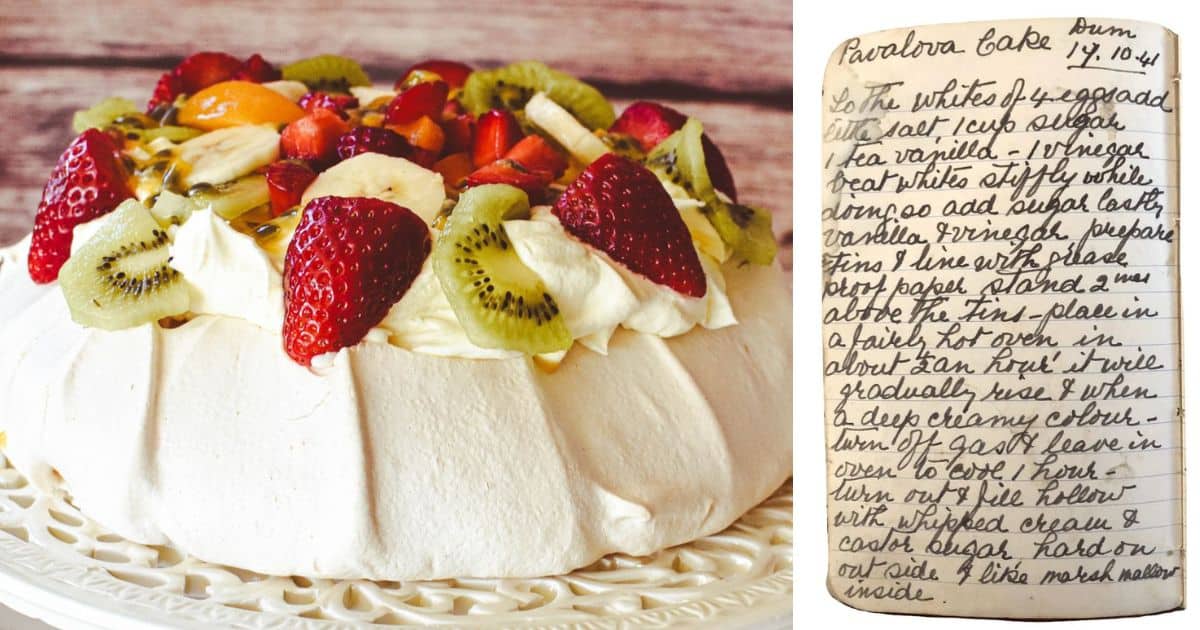 Pavalova Cake Dum
17.10.41
To the whites of 4 eggs add
little salt, 1 cup sugar
1 tea vanilla - 1 vinegar
beat whites stiffly while
doing so add sugar lastly
vanilla & vinegar, prepare
tins & line with grease
proof paper stand 2 ins
above the tins - place in
a fairly hot oven in
about ½ an hour it will
gradually rise & when
a deep creamy colour -
turn off gas & leave in
oven to cool 1 hour -
turn out & fill hollow
with whipped cream &
castor sugar hard on
out side & like marsh mallow
inside.